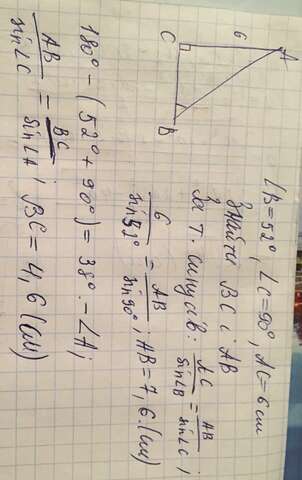 C 6 A
B
∠B=52°, ∠C=90°, AC=6 см
Знайти BC і AB
За т. синусів: AC/sin∠B = AB/sin∠C;
6/sin52° = AB/sin90°; AB=7,6 (см)
180° - (52° + 90°) = 38° - ∠A;
AB/sin∠C = BC/sin∠A; BC=4,6 (см)